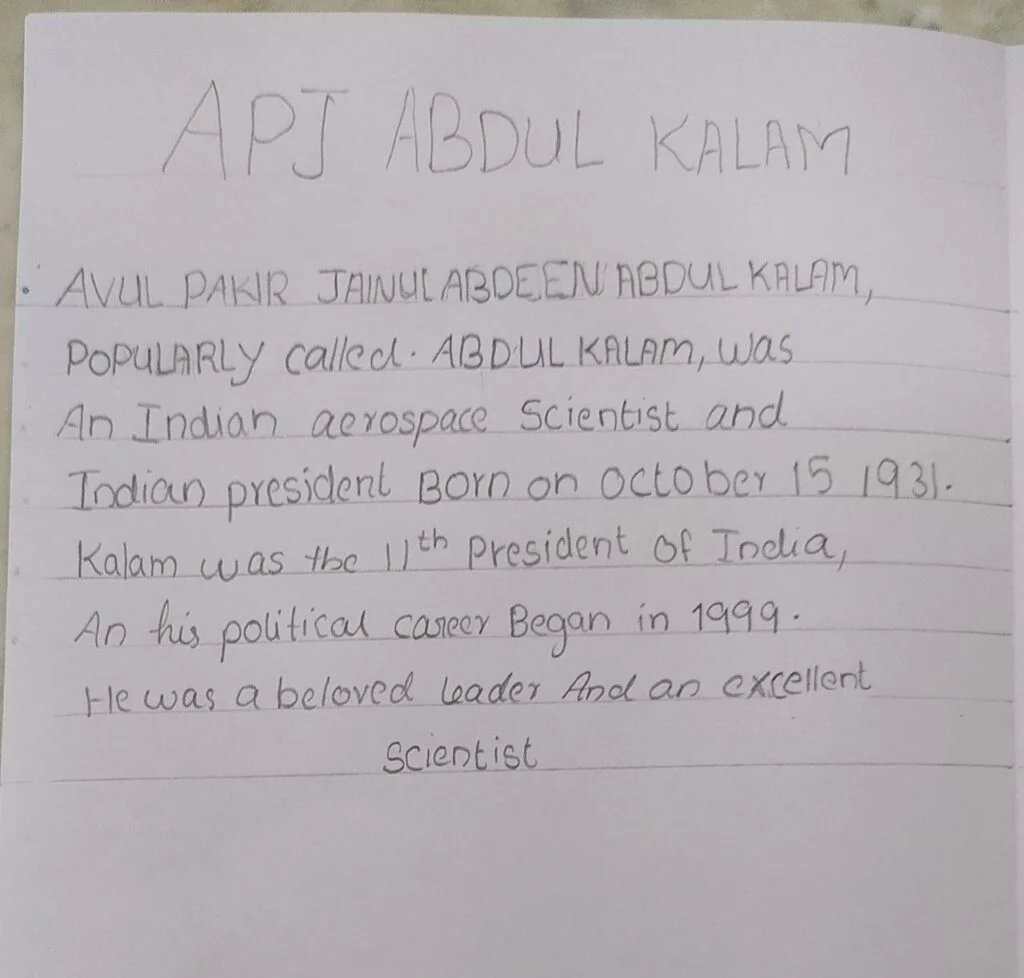 APJ ABDUL KALAM
. AVUL PAKIR JAINULABDEEN ABDUL KALAM,
POPULARLY called. ABDUL KALAM, was
An Indian aerospace Scientist and
Indian president Born on October 15 1931.
Kalam was the 11th president of India,
An his political career Began in 1999.
He was a beloved leader And an excellent
Scientist